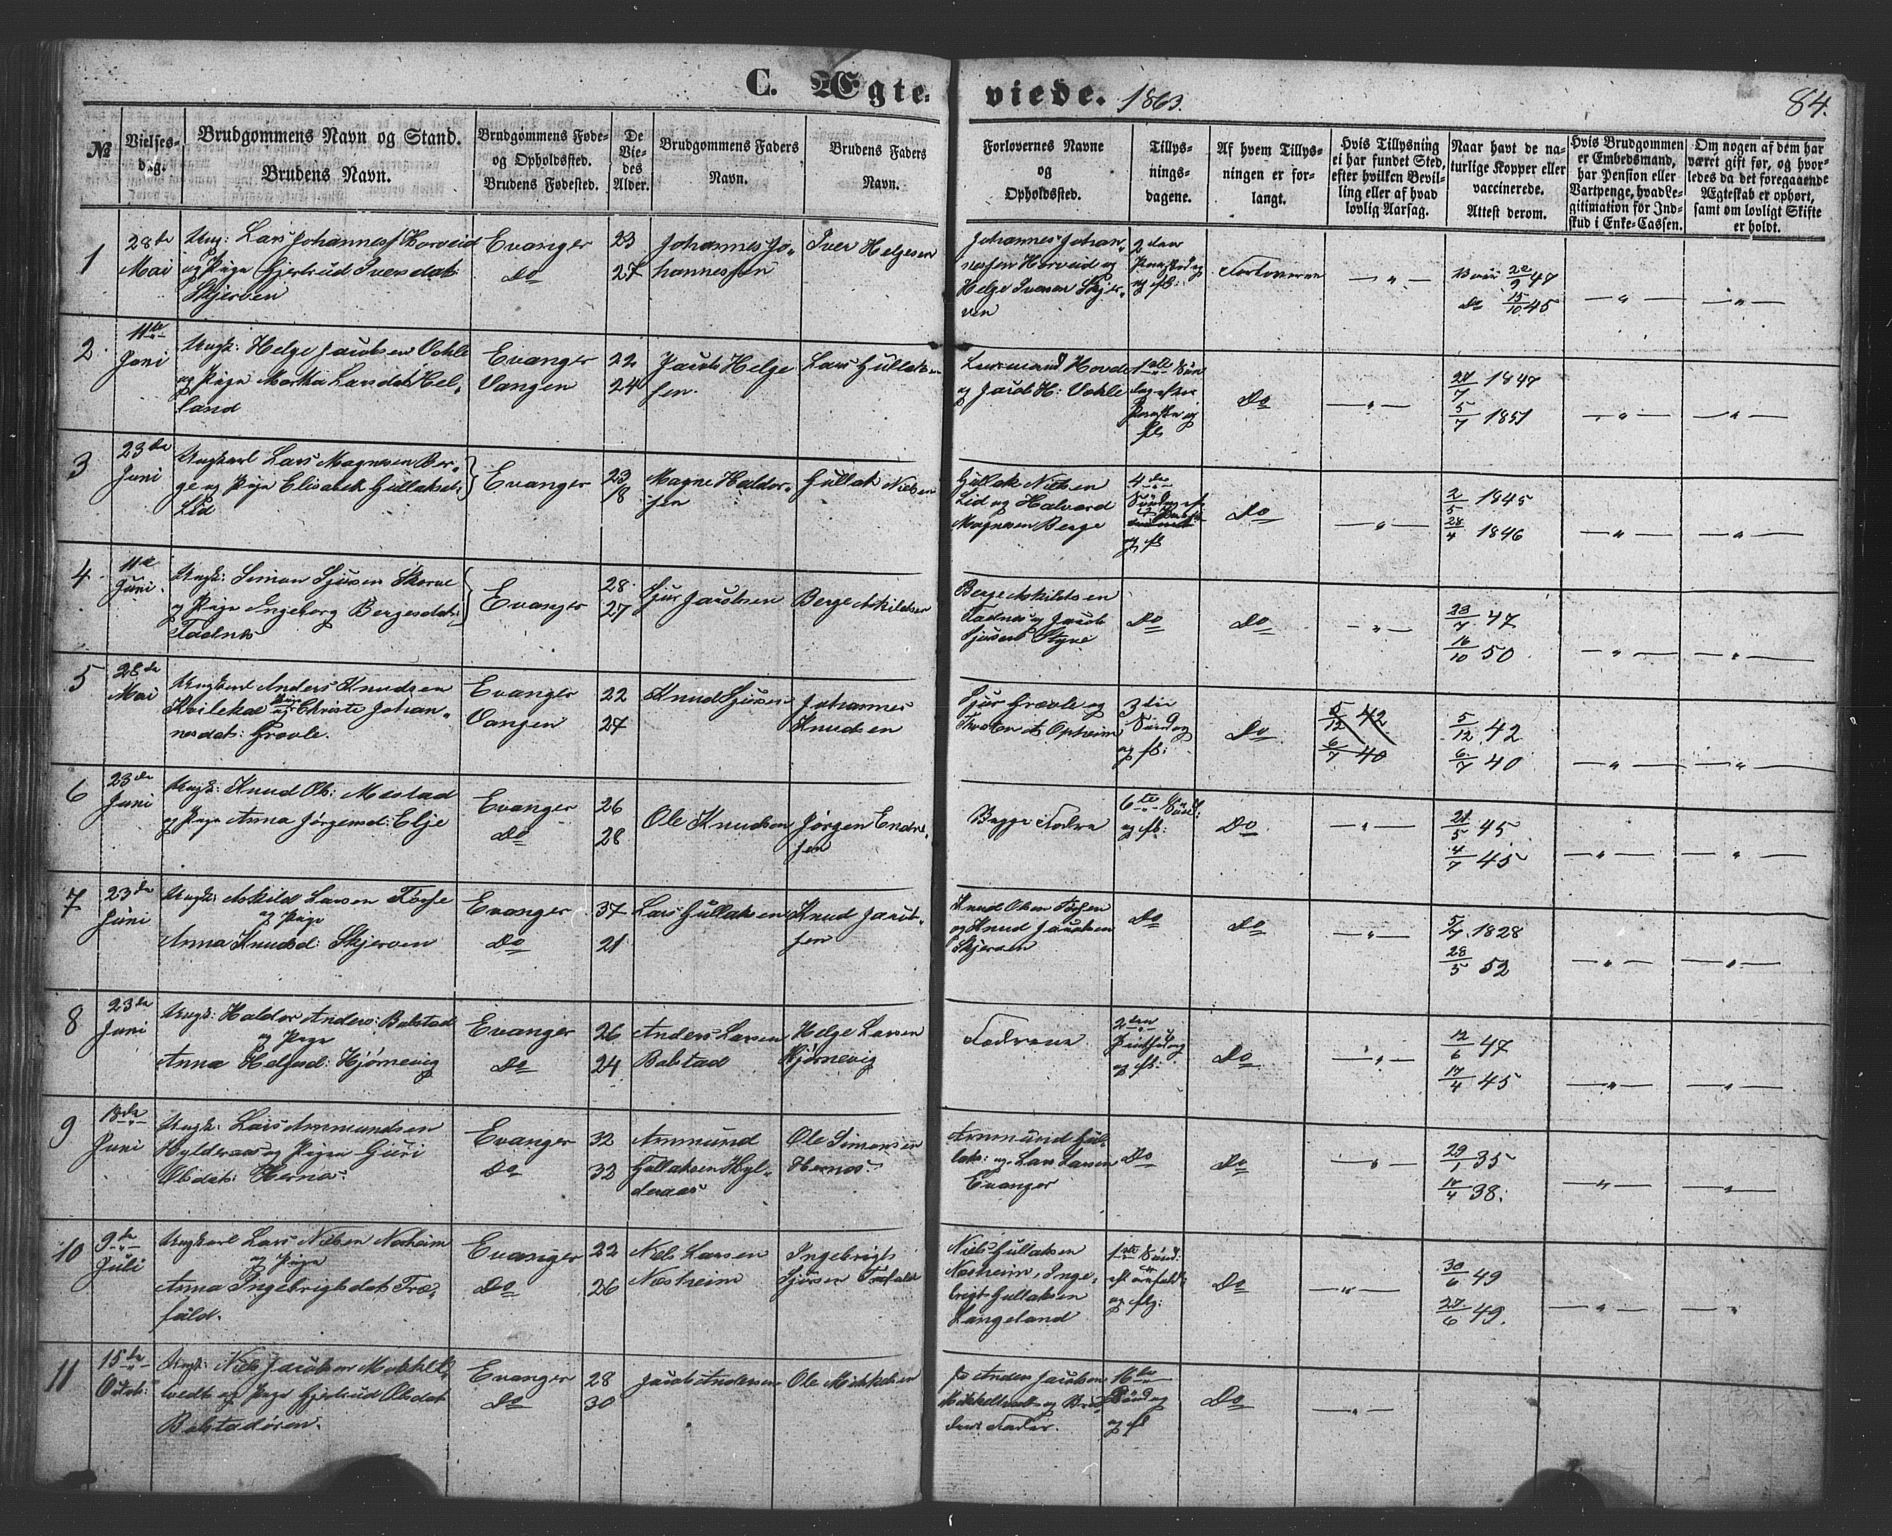 C. Ægte-viede. 1863.
84.
№
Vielses-
dag.
Brudgommens Navn og Stand.
Brudens Navn.
Brudgommens Føde-
og Opholdssted.
Brudens Fødested.
De
Vie-
des
Alder.
Brudgommens Faders
Navn.
Brudens Faders
Navn.
Forlovernes Navne
og
Opholdssted.
Tillys-
nings-
dagene.
Af hvem Tillys-
ningen er for-
langt.
Hvis Tillysning
ei har fundet Sted,
efter hvilken Bevil-
ling eller af hvad
lovlig Aarsag.
Naar havt de na-
turlige Kopper eller
vaccinerede.
Attest derom.
Hvis Brudgommen
er Embedsmand,
har Pension eller
Vartpenge, hvad Le-
gitimation for Ind-
skud i Enke-Cassen.
Om nogen af dem har
været gift før, og hvor-
ledes da det foregaaende
Ægteskab er ophørt,
samt om lovligt Skifte
er holdt.
1
28de
Mai
Ung: Lars Johannesf Horveid
og Pige Gjertrud Iversdat:
Skjerven
Evanger
Do
23
27
Johannes Jo-
hannessen
Iver Helgesen
Johannes Johan-
nessen Horveid og
Helge Iversen Skjer-
ven
2den
og fl:
Forloverne
22/9 47
Do 15/10 45
2
11te
Juni
Ungk: Helge Jacobsen Vohle
og Pige Martha Larsdat: Hel-
land
Evanger
Vangen
22
24
Jacob Helge
sen.
Lars Gullaksen
og Jacob H: Vohle
1ste Søn
dag efter
og
fl:
Do
21/7 1847
5/7 1851
3
23de
Juni
Ungkarl Lars Magnesen Ber-
ge og Pige Elisabeth Gullaksd:
Lid
Evanger
23
18
Magne Haldor-
sen
Gullak Nielsen
Gullak Nielsen
Lid og Halvard
Magnesen Berge
4de
Søndag
og fl
Do
2/5 1845
28/4 1846
4
11te
Juni.
Ungk: Simon Sjursen Skorve
og Pige Ingeborg Bergesdat:
Fadnes
Evanger
28.
27
Sjur Jacobsen
Berge Askildsen
Berge Askildsen
Fadnes og Jacob
Sjursen Styve
Do
Do
23/7 47
16/10 50
5
28de
Mai
Ungkarl Anders Knudsen
Kvilekval og Pige Christi Johan-
nesdat: Grovle.
Evanger
Vangen
22
27
Knud Sjursen
Johannes
Knudsen
Sjur Grovle og
Thorsten Opheim
3die
Søndag
og fl:
Do
5/12 42
6/7 40
5/12 42
6/7 40
6
23de
Juni
Ungk: Knud Ols: Mestad
og Pige Anna Jørgensd: Elje
Evanger
Do
26
28
Ole Knudsen
Jørgen Endre-
sen
Begge Fædre
6te Sønd:
og fl:
Do
21/5 45
4/7 45
7
23de
Juni
Ungk: Askild Larsen Fosse
og Pige
Anna Knudsd: Skjerven
Evanger
Do
37
21
Lars Gullaksen
Knud Jacob-
sen
Knud Olsen Fosse
og Knud Jacobsen
Skjerven
Do
Do
5/7 1828
28/5 52
8
23de
Juni
Ungk: Haldor Anders: Bolstad
og Pige
Anna Helgesd: Hjørnevig
Evanger
Do
26
24
Anders Larsen
Bolstad
Helge Larsen
Hjørnevig
Fædrene
2den
Pintsedag
og fl:
Do
12/6 47
17/4 45
9
18de
Juni
Ungk: Lars Ammundsen
Hylderaas og Pigen Guri
Olsdat: Hernes.
Evanger
Do
32
32
Ammund
Gullaksen Hyl-
deraas
Ole Simonsen
Hernes.
Ammund Gul-
laks: og Lars Larsen
Evanger
Do
Do
29/1 35
17/4 38.
10
9de
Juli
Ungkarl Lars Nielsen Nesheim
og Pige
Anna Ingebrigtsdat: Træ-
fald.
Evanger
Do
22
26
Niels Larsen
Nesheim
Ingebrigt
Sjursen Træfald
Niels Gullaksen
Nesheim, Inge-
brigt Gullaksen
Langeland
1ste Sønd:
og flg:
Do
30/6 49
27/6 49.
11
15de
Octob:
Ungk: Niels Jacobsen Mikkel-
tvedt og Pige Gjertrud Olsdat:
Bolstadøren.
Evanger
Do
28
30
Jacob Andersen
Ole Mikkelsen
Anders Jacobsen
Mikkeltvedt og Bru-
dens Fader.
16de
Søndag
og fl
Do